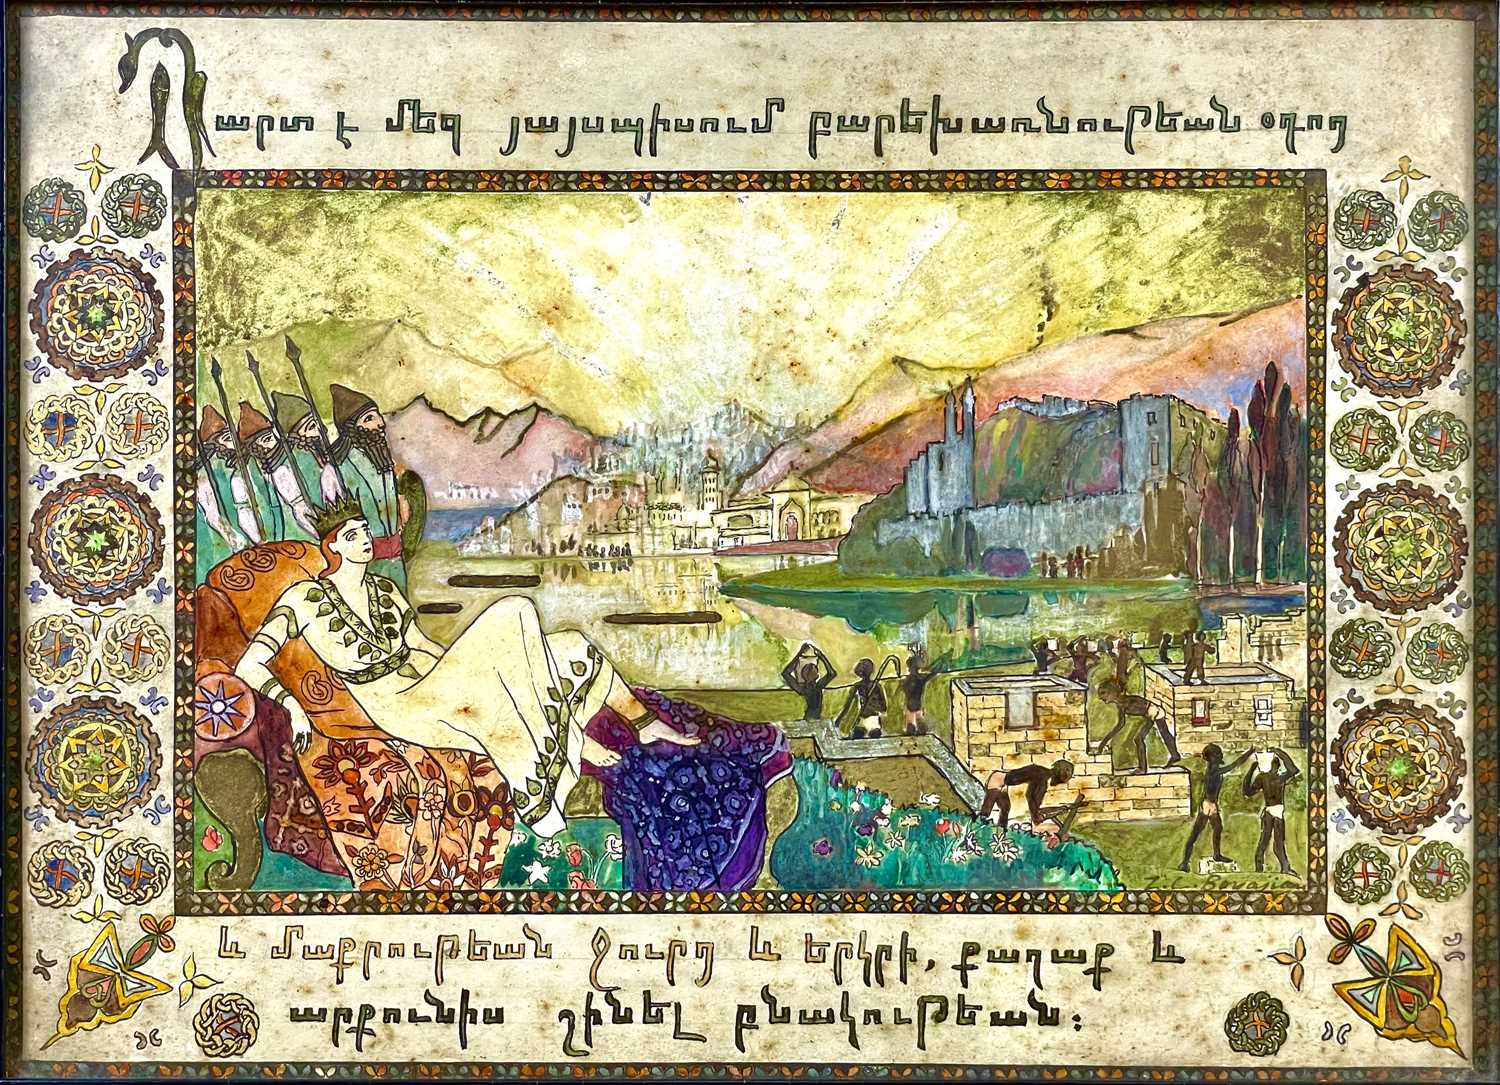 Պարտ է մեզ յայսպիսում բարեխառնութեան օդոց
և մաքրութեան ջուրց և երկրի, քաղաք և
արքունիս շինել բնակութեան: